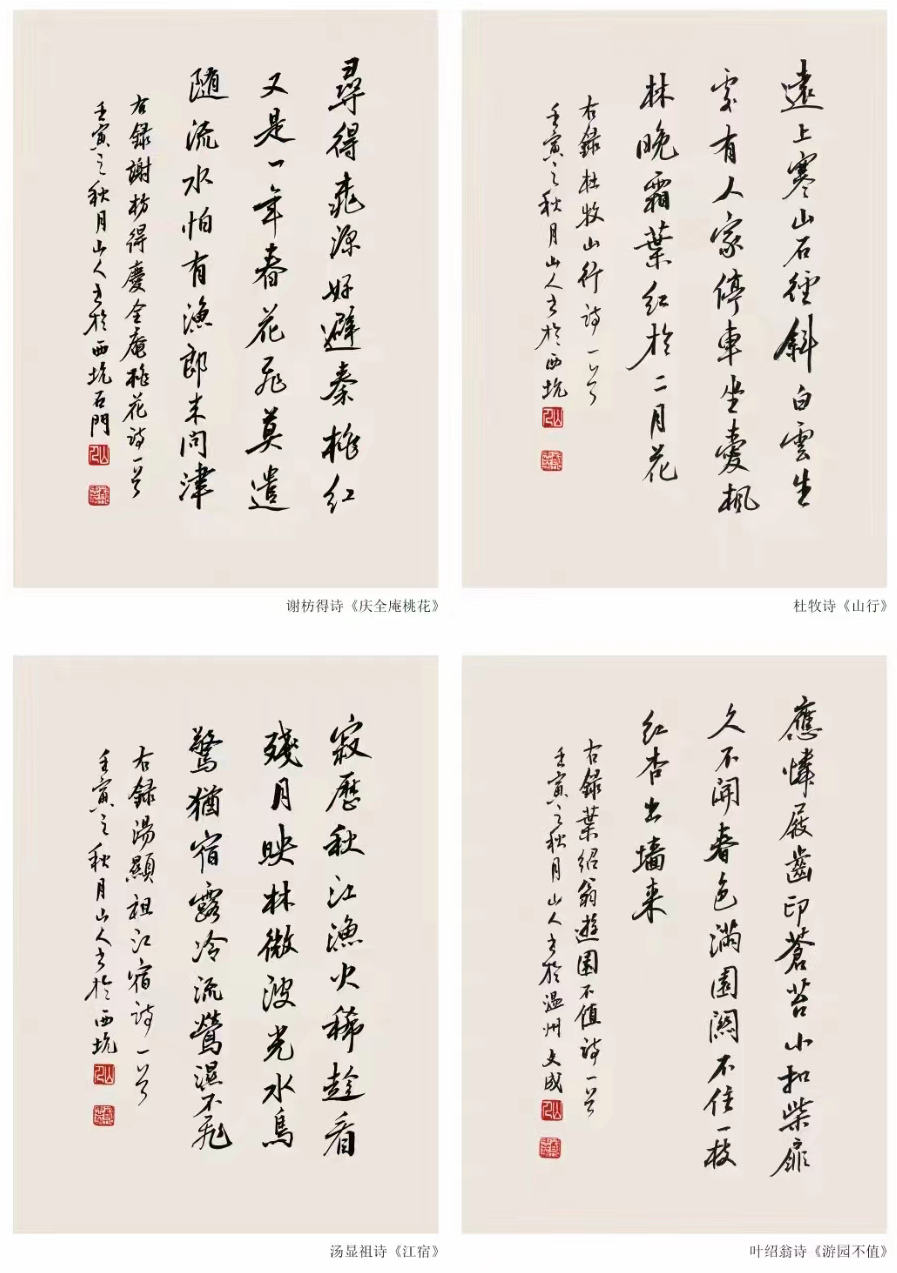 尋得桃源好避秦桃红
又是一年春花飛莫遣
隨流水怕有漁郎来问津
右録謝枋得慶全庵桃花诗一首
壬寅之秋月山人书於西坑石門
谢枋得诗《庆全庵桃花》
遠上寒山石徑斜白雲生
處有人家停車坐愛楓
林晚霜葉红於二月花
右録杜牧山行诗一首
壬寅之秋月山人书於西坑
杜牧诗《山行》
寂歷秋江漁火稀起看
殘月映林微波光水鳥
驚猶宿露冷流鶯濕不飛
右録湯顯祖江宿诗一首
壬寅之秋月山人书於西坑
汤显祖诗《江宿》
應憐屐齒印蒼苔小扣柴扉
久不開春色滿園關不住一枝
红杏出墙来
右録葉绍翁遊園不值诗一首
壬寅之秋月山人书於温州文成
叶绍翁诗《游园不值》